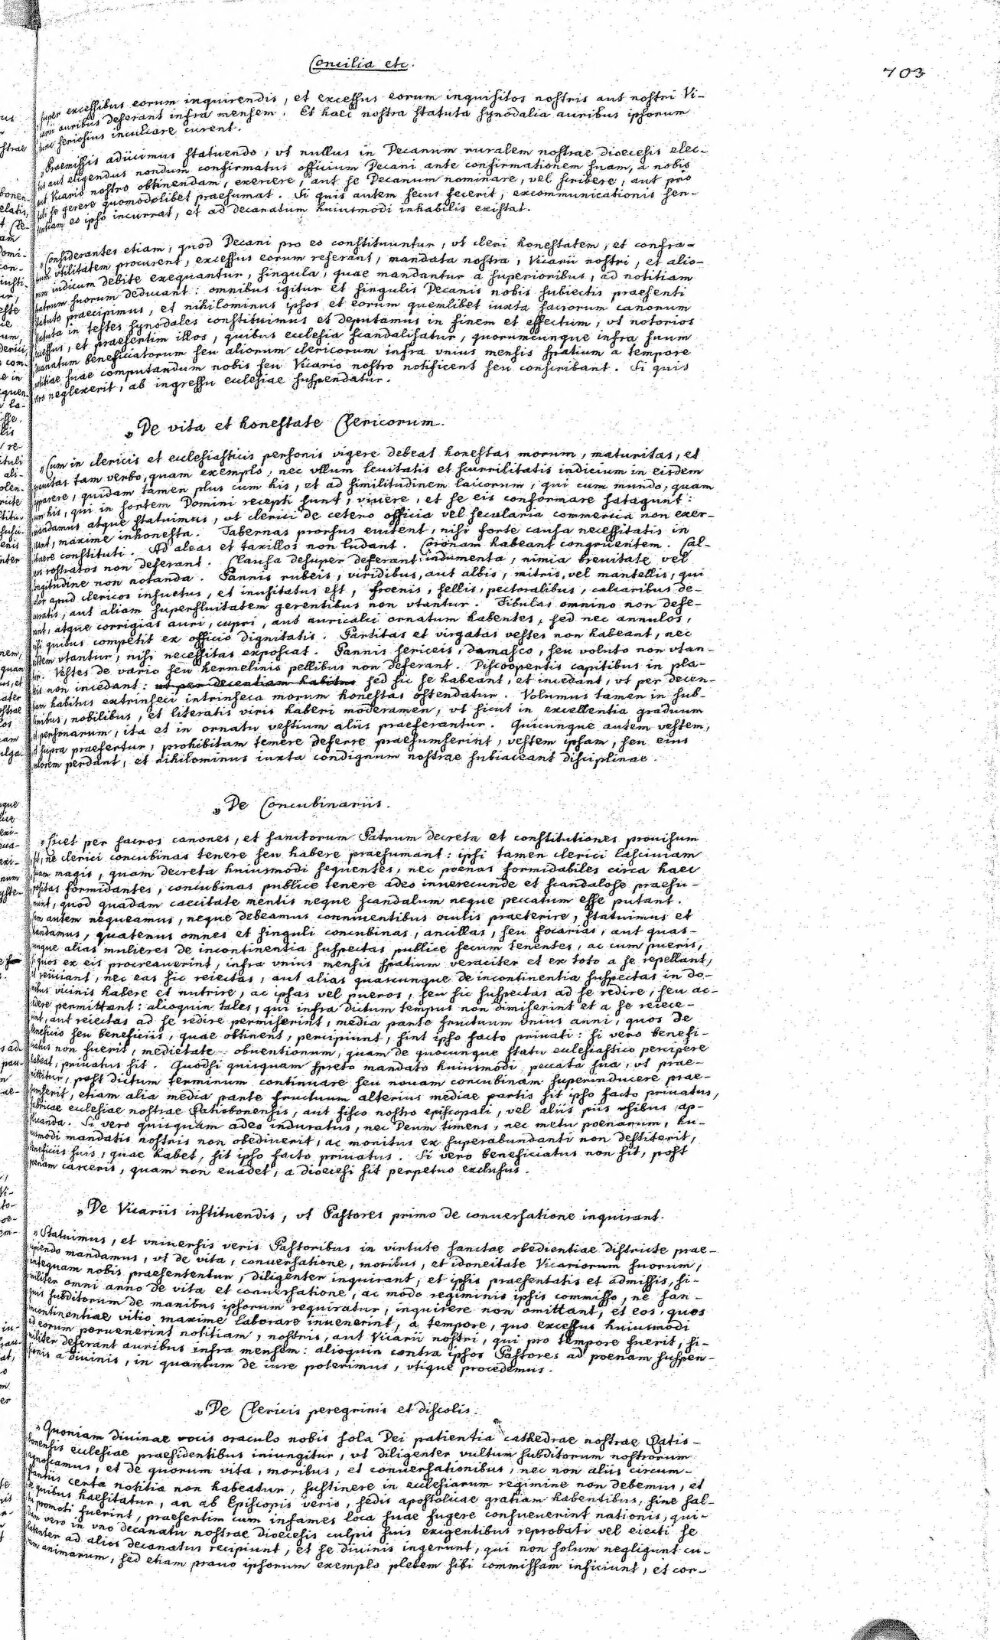 Concilia etc.
703
super excessibus eorum inquirendis, et excessus eorum inquisitos nostris aut nostri Vi-
auribus deferant infra mensem. Et haec nostra statuta synodalia auribus ipsorum
seriosius inculcare curent.
„Praemissis adiicimus statuendo, vt nullus in Decanum ruralem nostrae dioecesis elec-
tus aut eligendus nondum confirmatus officium Decani ante confirmationem suam, a nobis
aut Vicario nostro obtinendam, exercere, aut se Decanum nominare, vel scribere, aut pro
se gerere quomodolibet praesumat. Si quis autem secus fecerit, excommunicationis sen-
tentiam eo ipso incurrat, et ad decanatum huiusmodi inhabilis existat.
„Considerantes etiam, quod Decani pro eo constituuntur, vt cleri honestatem, et confra-
trum vtilitatem procurent, excessus eorum referant, mandata nostra, Vicarii nostri, et alio-
rum iudicum debite exequantur, singula, quae mandantur a superioribus, ad notitiam
fratrum suorum deducant: omnibus igitur et singulis Decanis nobis subiectis praesenti
statuto praecipimus, et nihilominus ipsos et eorum quemlibet iuxta sacrorum canonum
statuta in testes synodales constituimus et deputamus in finem et effectum, vt notorios
excessus, et praesertim illos, quibus ecclesia scandalisatur, quorumcunque infra suum
decanatum beneficiatorum seu aliorum clericorum infra vnius mensis spatium a tempore
notitiae suae computandum nobis seu Vicario nostro notificent seu conscribant. Si quis
neglexerit, ab ingressu ecclesiae suspendatur.
„De vita et honestate Clericorum.
„Cum in clericis et ecclesiasticis personis vigere debeat honestas morum, maturitas, et
grauitas tam verbo, quam exemplo, nec vllum leuitatis et scurrilitatis indicium in eisdem
apparere, quidam tamen plus cum his, et ad similitudinem laicorum, qui cum mundo, quam
cum his, qui in sortem Domini recepti sunt, viuere, et se eis conformare satagunt:
mandamus atque statuimus, vt clerici de cetero officia vel secularia commercia non exer-
ceant, maxime inhonesta. Tabernas prorsus euitent, nisi forte causa necessitatis in
itinere constituti. Ad aleas et taxillos non ludant. Coronam habeant congruentem. Cal-
ceos rostratos non deferant. Clausa desuper deferant indumenta, nimia breuitate vel
longitudine non notanda. Pannis rubeis, viridibus, aut albis, mitris, vel mantellis, qui
color apud clericos insuetus, et inusitatus est, froenis, sellis, pectoralibus, calcaribus de-
auratis, aut aliam superfluitatem gerentibus non vtantur. Fibulas omnino non defe-
rant, atque corrigias auri, cupri, aut auricalci ornatum habentes, sed nec annulos,
nisi quibus competit ex officio dignitatis. Partitas et virgatas vestes non habeant, nec
eisdem vtantur, nisi necessitas exposcat. Pannis sericeis, damasco, seu veluto non vtan-
tur. Vestes de vario seu hermelinis pellibus non deferant. Discoopertis capitibus in pla-
teis non incedant: ut per decentiam habitus sed sic se habeant, et incedant, vt per decen-
tiam habitus extrinseci intrinseca morum honestas ostendatur. Volumus tamen in sub-
limibus, nobilibus, et literatis viris haberi moderamen, vt sicut in excellentia graduum
et personarum, ita et in ornatu vestium aliis praeferantur. Quicunque autem vestem,
vt supra praefertur, prohibitam temere deferre praesumserint, vestem ipsam, seu eius
valorem perdant, et nihilominus iuxta condignum nostrae subiaceant disciplinae.
„De Concubinariis.
„Licet per sacros canones, et sanctorum Patrum decreta et constitutiones prouisum
sit, ne clerici concubinas tenere seu habere praesumant: ipsi tamen clerici lasciuiam
suam magis, quam decreta huiusmodi sequentes, nec poenas formidabiles circa haec
positas formidantes, concubinas publice tenere adeo inuerecunde et scandalose praesu-
munt, quod quadam caecitate mentis neque scandalum neque peccatum esse putant.
Cum autem nequeamus, neque debeamus conniuentibus oculis praeterire, statuimus et
mandamus, quatenus omnes et singuli concubinas, ancillas, seu focarias, aut quas-
cunque alias mulieres de incontinentia suspectas publice secum tenentes, ac cum pueris,
si quos ex eis procreauerint, infra vnius mensis spatium veraciter et ex toto a se repellant,
et reiiciant, nec eas sic reiectas, aut alias quascunque de incontinentia suspectas in do-
mibus vicinis habere et nutrire, ac ipsas vel pueros, seu sic suspectas ad se redire, seu ac-
cedere permittant: alioquin tales, qui infra dictum tempus non dimiserint et a se reiece-
rint, aut reiectas ad se redire permiserint, media parte fructuum vnius anni, quos de
beneficio seu beneficiis, quae obtinent, percipiunt, sint ipso facto priuati: si vero benefi-
ciatus non fuerit, medietate obuentionum, quam de quocunque statu ecclesiastico percipere
debeat, priuatus sit. Quodsi quisquam spreto mandato huiusmodi peccata sua, vt prae-
mittitur, post dictum terminum continuare seu nouam concubinam superinducere prae-
sumserit, etiam alia media parte fructuum alterius mediae partis sit ipso facto priuatus,
fabricae ecclesiae nostrae Ratisbonensis, aut fisco nostro episcopali, vel aliis piis vsibus ap-
plicanda. Si vero quisquam adeo induratus, nec Deum timens, nec metu poenarum, hu-
iusmodi mandatis nostris non obediuerit, ac monitus ex superabundanti non destiterit,
beneficiis suis, quae habet, sit ipso facto priuatus. Si vero beneficiatus non sit, post
poenam carceris, quam non euadet, a dioecesi sit perpetuo exclusus.
„De Vicariis instituendis, vt Pastores primo de conuersatione inquirant.
„Statuimus, et vniuersis veris Pastoribus in virtute sanctae obedientiae districte prae-
cipiendo mandamus, vt de vita, conuersatione, moribus, et idoneitate Vicariorum suorum,
antequam nobis praesententur, diligenter inquirant, et ipsis praesentatis et admissis, si-
militer omni anno de vita et conuersatione, ac modo regiminis ipsis commisso, ne san-
guis subditorum de manibus ipsorum requiratur, inquirere non omittant, et eos, quos
incontinentiae vitio maxime laborare inuenerint, a tempore, quo excessus huiusmodi
ad eorum peruenerint notitiam, nostris, aut Vicarii nostri, qui pro tempore fuerit, si-
militer deferant auribus infra mensem: alioquin contra ipsos Pastores ad poenam suspen-
sionis a diuinis, in quantum de iure poterimus, vtique procedemus.
„De Clericis peregrinis et discolis.
„Quoniam diuinae vocis oraculo nobis sola Dei patientia cathedrae nostrae Ratis-
bonensis ecclesiae praesidentibus iniungitur, vt diligenter vultum subditorum nostrorum
agnoscamus, et de quorum vita, moribus, et conuersationibus, nec non aliis circum-
stantiis certa notitia non habeatur, sustinere in ecclesiarum regimine non debemus, et
de quibus haesitatur, an ab Episcopis veris, sedis apostolicae gratiam habentibus, sine sal-
promoti fuerint, praesertim cum infames loca suae fugere consueuerint nationis, qui-
dam vero in vno decanatu nostrae dioecesis culpis suis exigentibus reprobati vel eiecti se
latenter ad alios decanatus recipiunt, et se diuinis ingerunt, qui non solum negligunt cu-
ram animarum, sed etiam prauo ipsorum exemplo plebem sibi commissam inficiunt, et cor-